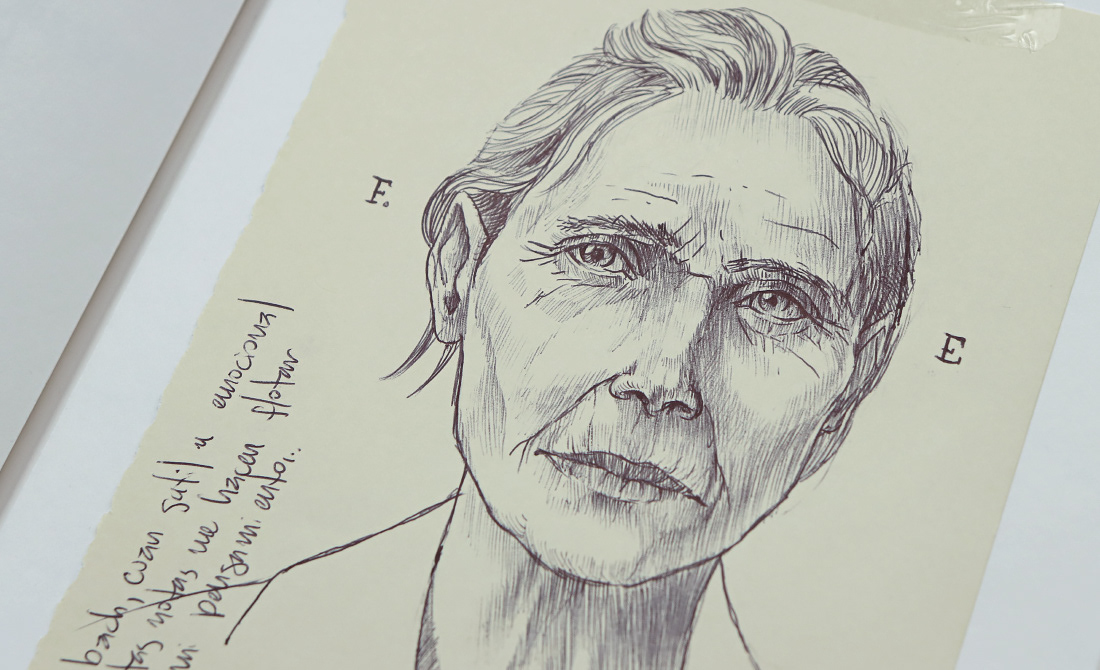 F.
E
bach, cuan sutil y emocional
tas notas me hacen flotar
mi pensamiento.